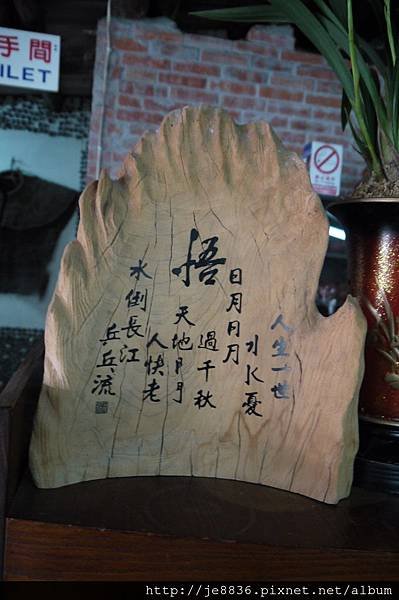 手間
ILET
悟
人生一世
憂
日月日月
過千秋
天地
人快老
水倒長江
流
http://je8836.pixnet.net/album